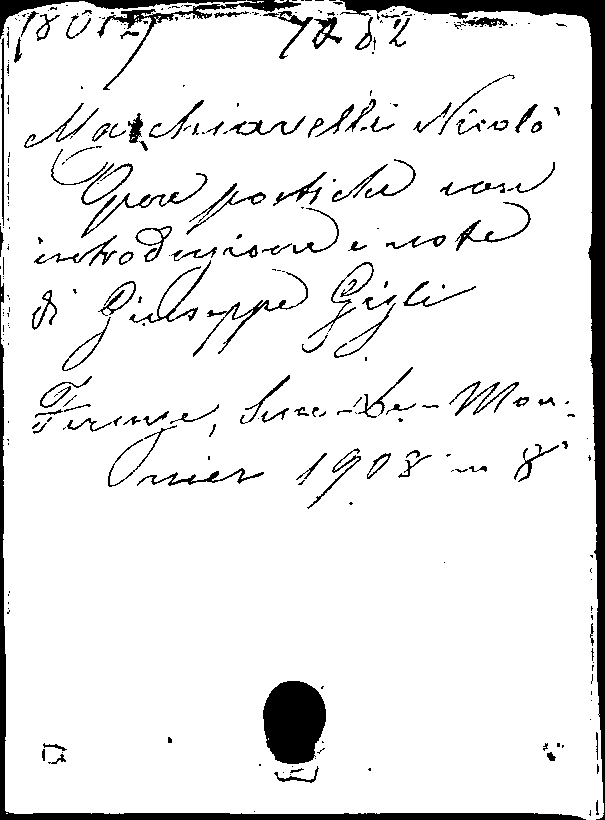 (8052) 1282
Machiavelli Nicolò
Opere poetiche con
introduzione e note
di Giuseppe Gigli
Firenze, Succ. Le-Mon-
nier 1908 in 8°